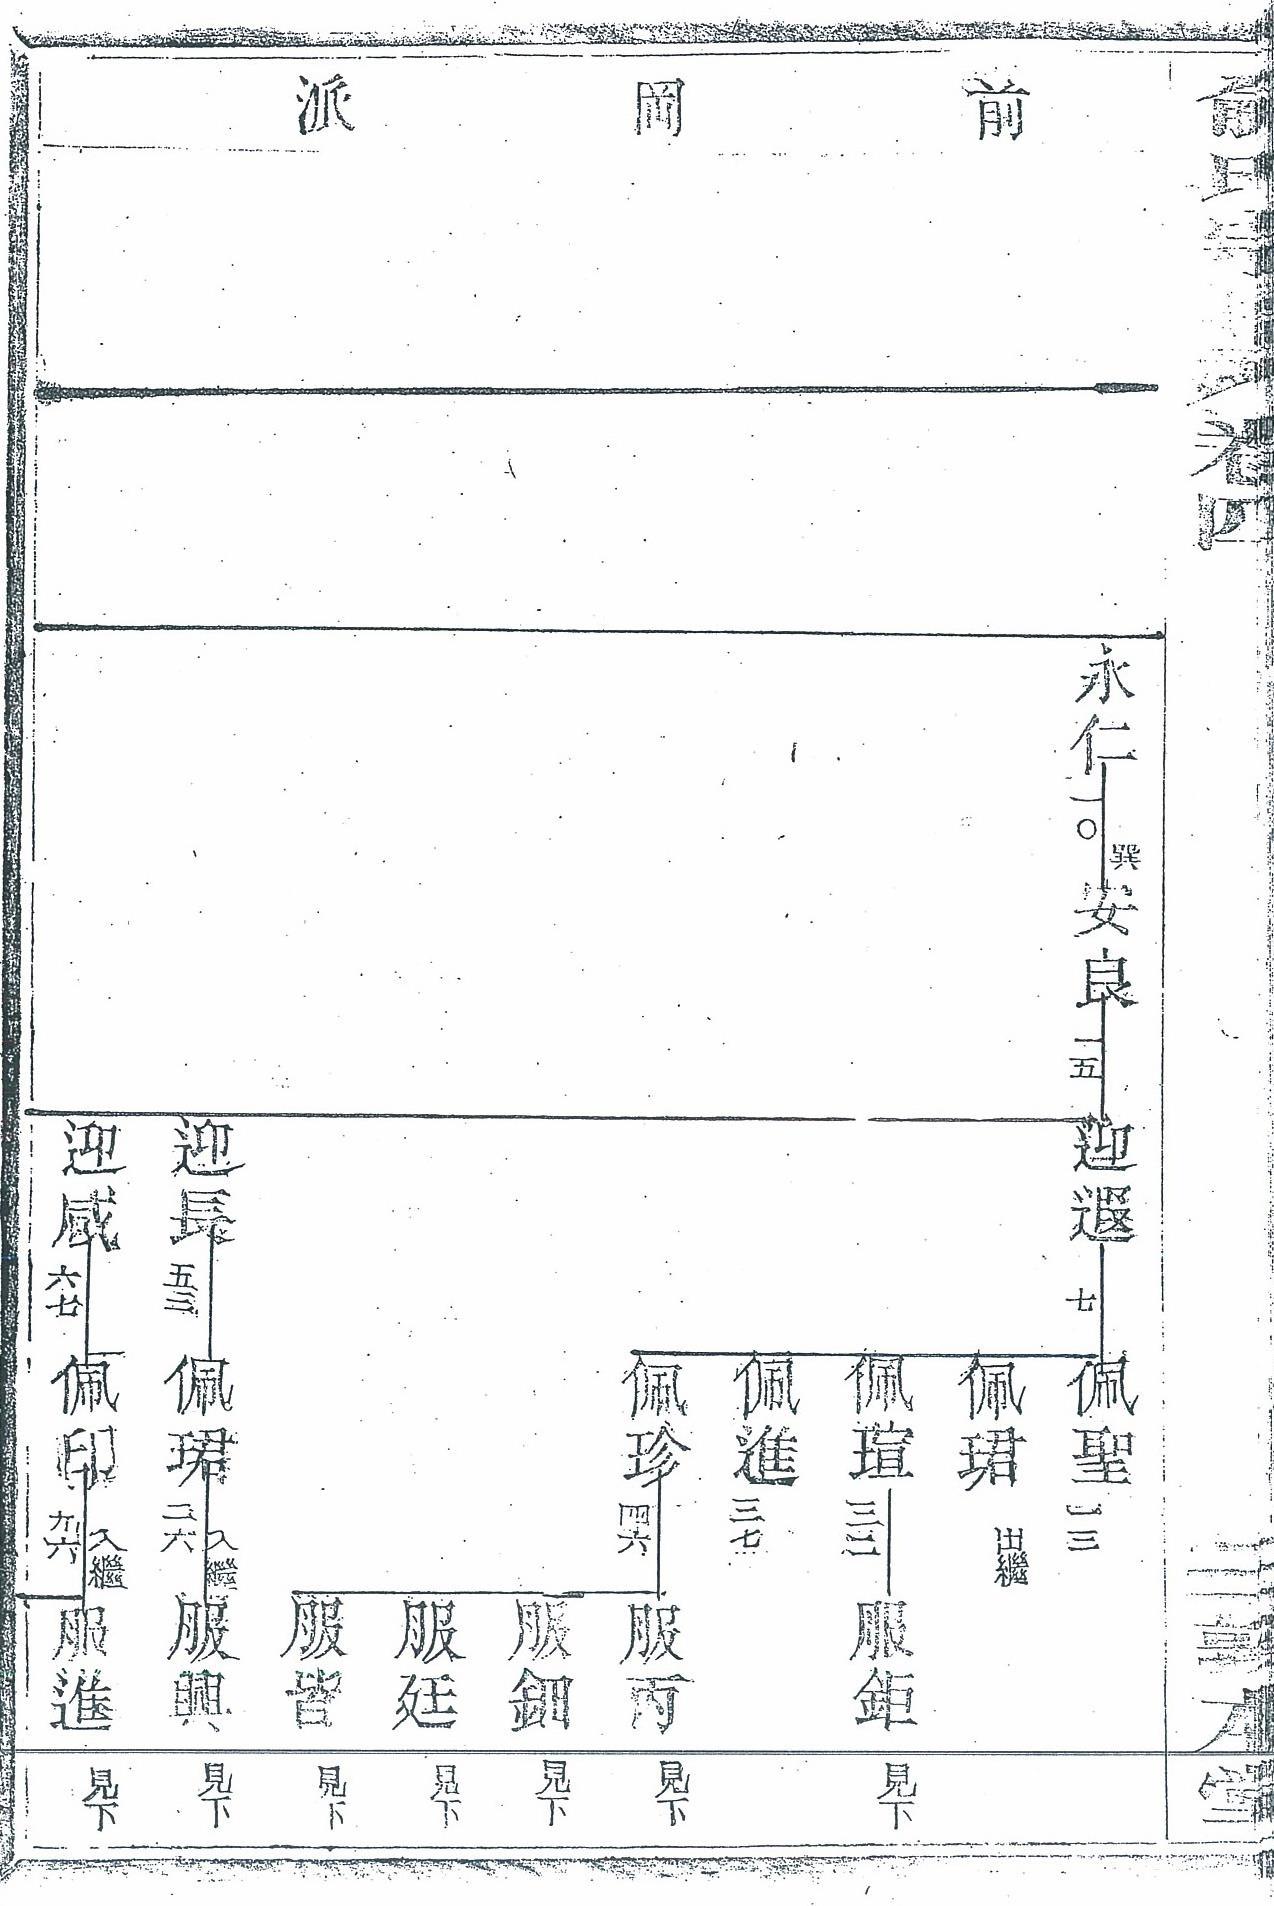 前岡派
卷四
永仁 一〇
巽
安良 一五
迎遐 七
佩聖 一三
佩珺 出繼
佩瑄 三二
服鉅 見下
佩進 三七
佩珍 四六
服丙 見下
服鈿 見下
服廷 見下
服皆 見下
迎長 五三
佩珺 二六 入繼
服興 見下
迎威 六七
佩印 九六 入繼
服進 見下